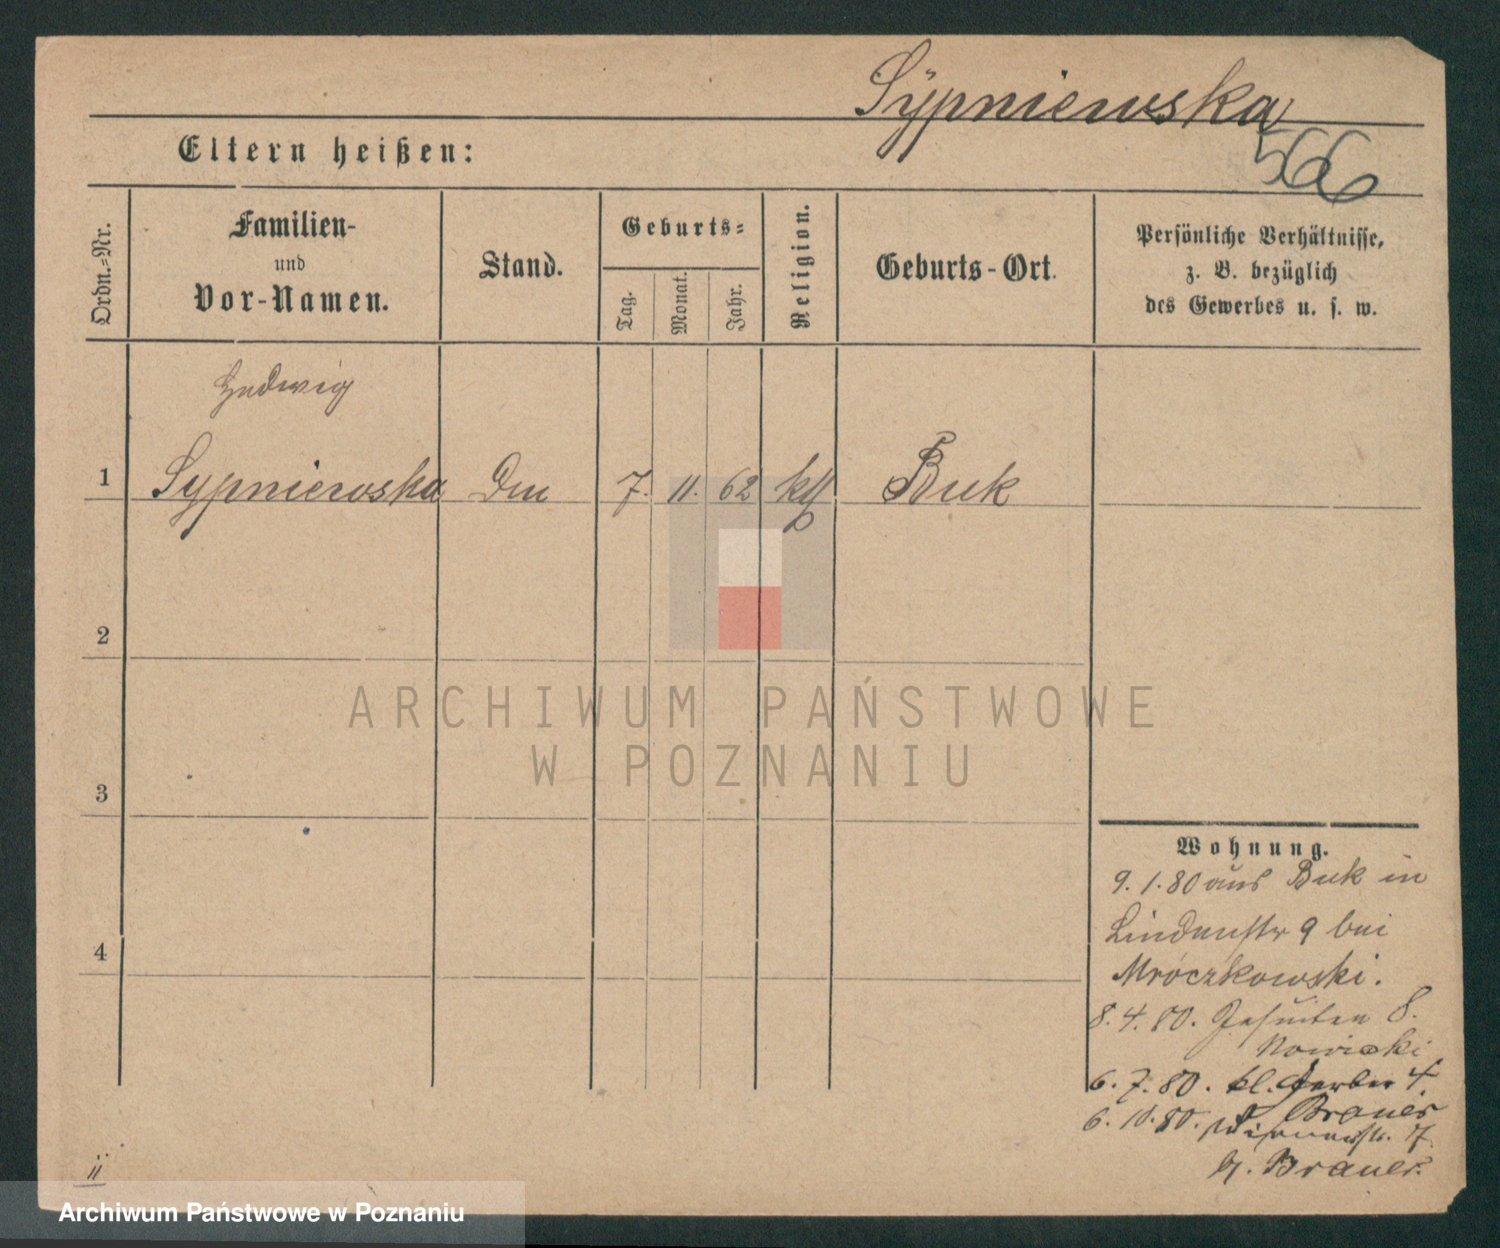 Sÿpniewska
566
Eltern heißen:
Ordn.-Nr.
Familien-
und
Vor-Namen.
Stand.
Geburts-
Tag.
Monat.
Jahr.
Religion.
Geburts-Ort.
Persönliche Verhältnisse,
z. B. bezüglich
des Gewerbes u. s. w.
Hedwig
1 Sypniewska 7. 11. 62 kth Buk
2
3
4
ARCHIWUM PAŃSTWOWE
W POZNANIU
Wohnung.
9. 1. 80 aus Buk in
Lindenstr 9 bei
Mroczkowski.
8. 4. 80. Jesuiten 8.
Nowicki
6. 7. 80. kl. Gerber 4.
Brauer
6. 10. 80. 7
Brauer.
ii
Archiwum Państwowe w Poznaniu